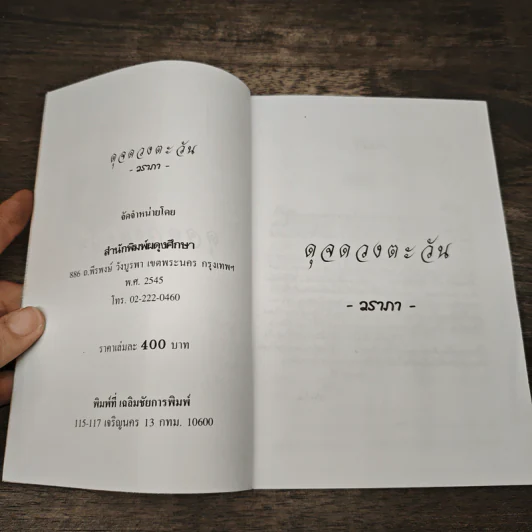 ดุจดวงตะวัน
- วราภา -
จัดจำหน่ายโดย
สำนักพิมพ์ผดุงศึกษา
886 ถ.พีรพงษ์ วังบูรพา เขตพระนคร กรุงเทพฯ
พ.ศ. 2545
โทร. 02-222-0460
ราคาเล่มละ 400 บาท
พิมพ์ที่ เฉลิมชัยการพิมพ์
115-117 เจริญนคร 13 กทม. 10600
ดุจดวงตะวัน
- วราภา -